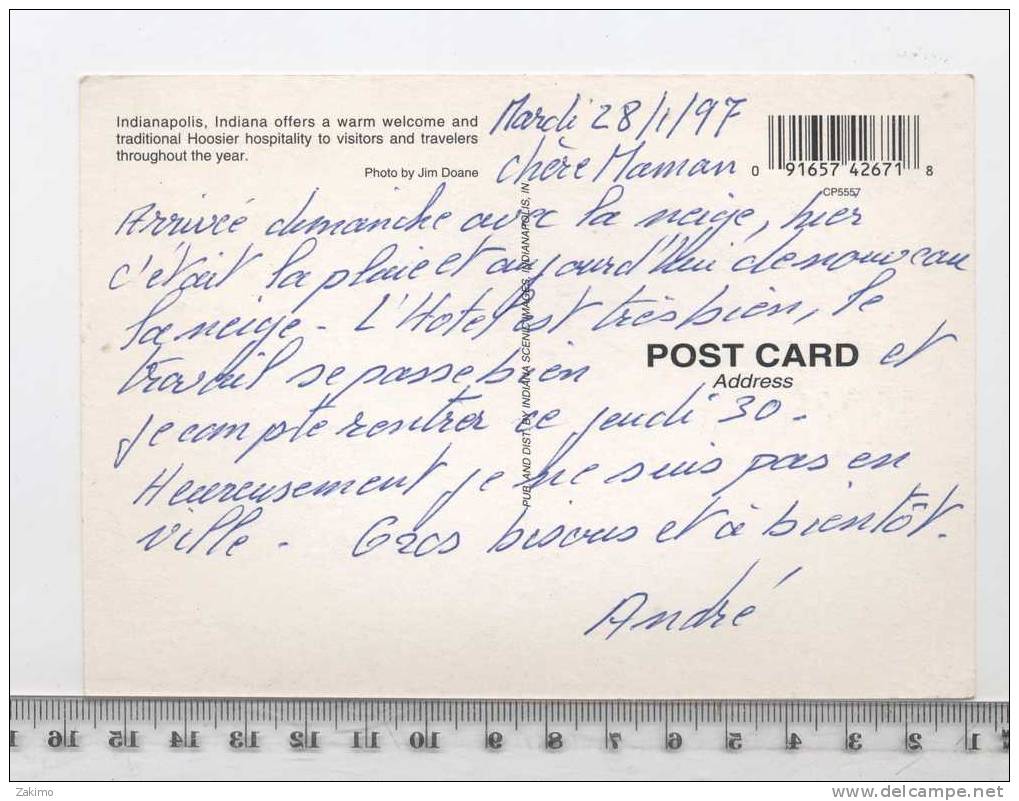 Indianapolis, Indiana offers a warm welcome and
traditional Hoosier hospitality to visitors and travelers
throughout the year.
Photo by Jim Doane
Mardi 28/1/97
chère Maman
0 91657 42671 8
CP5557
Arrivée dimanche avec la neige, hier
c'était la pluie et aujourd'hui de nouveau
la neige - L'Hotel est très bien, le
travail se passe bien et
je compte rentrer ce jeudi 30 -
Heureusement je ne suis pas en
ville - Gros bisous et à bientôt.
André
POST CARD
Address
PUB. AND DIST. BY INDIANA SCENIC IMAGES, INDIANAPOLIS, IN
16 15 14 13 12 11 10 9 8 7 6 5 4 3 2 1
Zakimo
www.delcampe.net